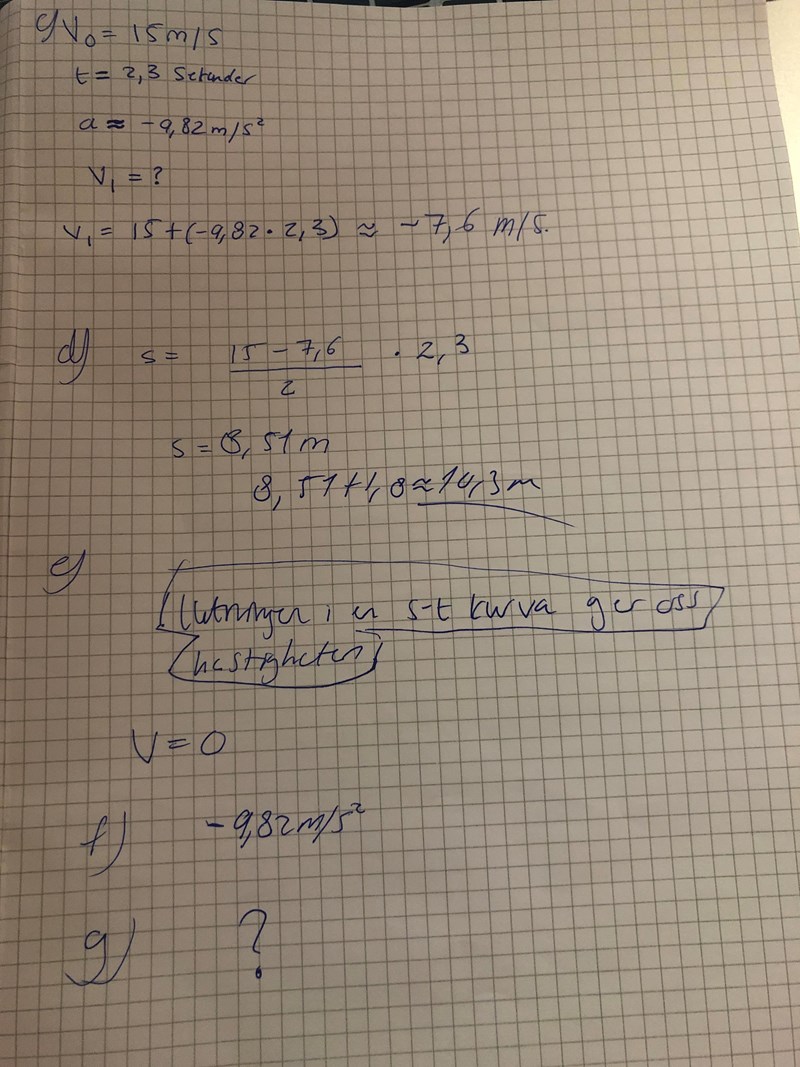 c) V₀ = 15 m/s
t = 2,3 Sekunder
a ≈ -9,82 m/s²
V₁ = ?
V₁ = 15+(-9,82·2,3) ≈ -7,6 m/s.
d) s = (15 - 7,6)/2 · 2,3
s = 8,51 m
8, 51+1,8≈14,3 m
e)
Lutningen i en s-t kurva ger oss
hastigheten
V = 0
f) -9,82 m/s²
g) ?